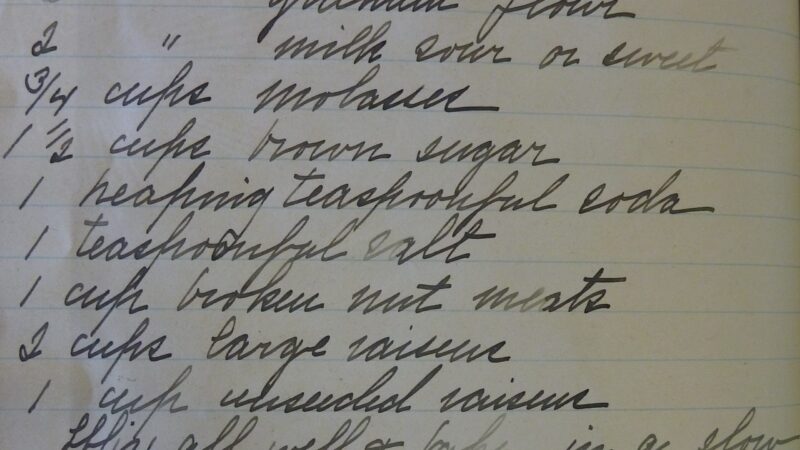 graham flour
2 " milk sour or sweet
3/4 cups molasses
1 1/2 cups brown sugar
1 heaping teaspoonful soda
1 teaspoonful salt
1 cup broken nut meats
2 cups large raisens
1 cup unseeded raisens
Mix all well & bake in a slow